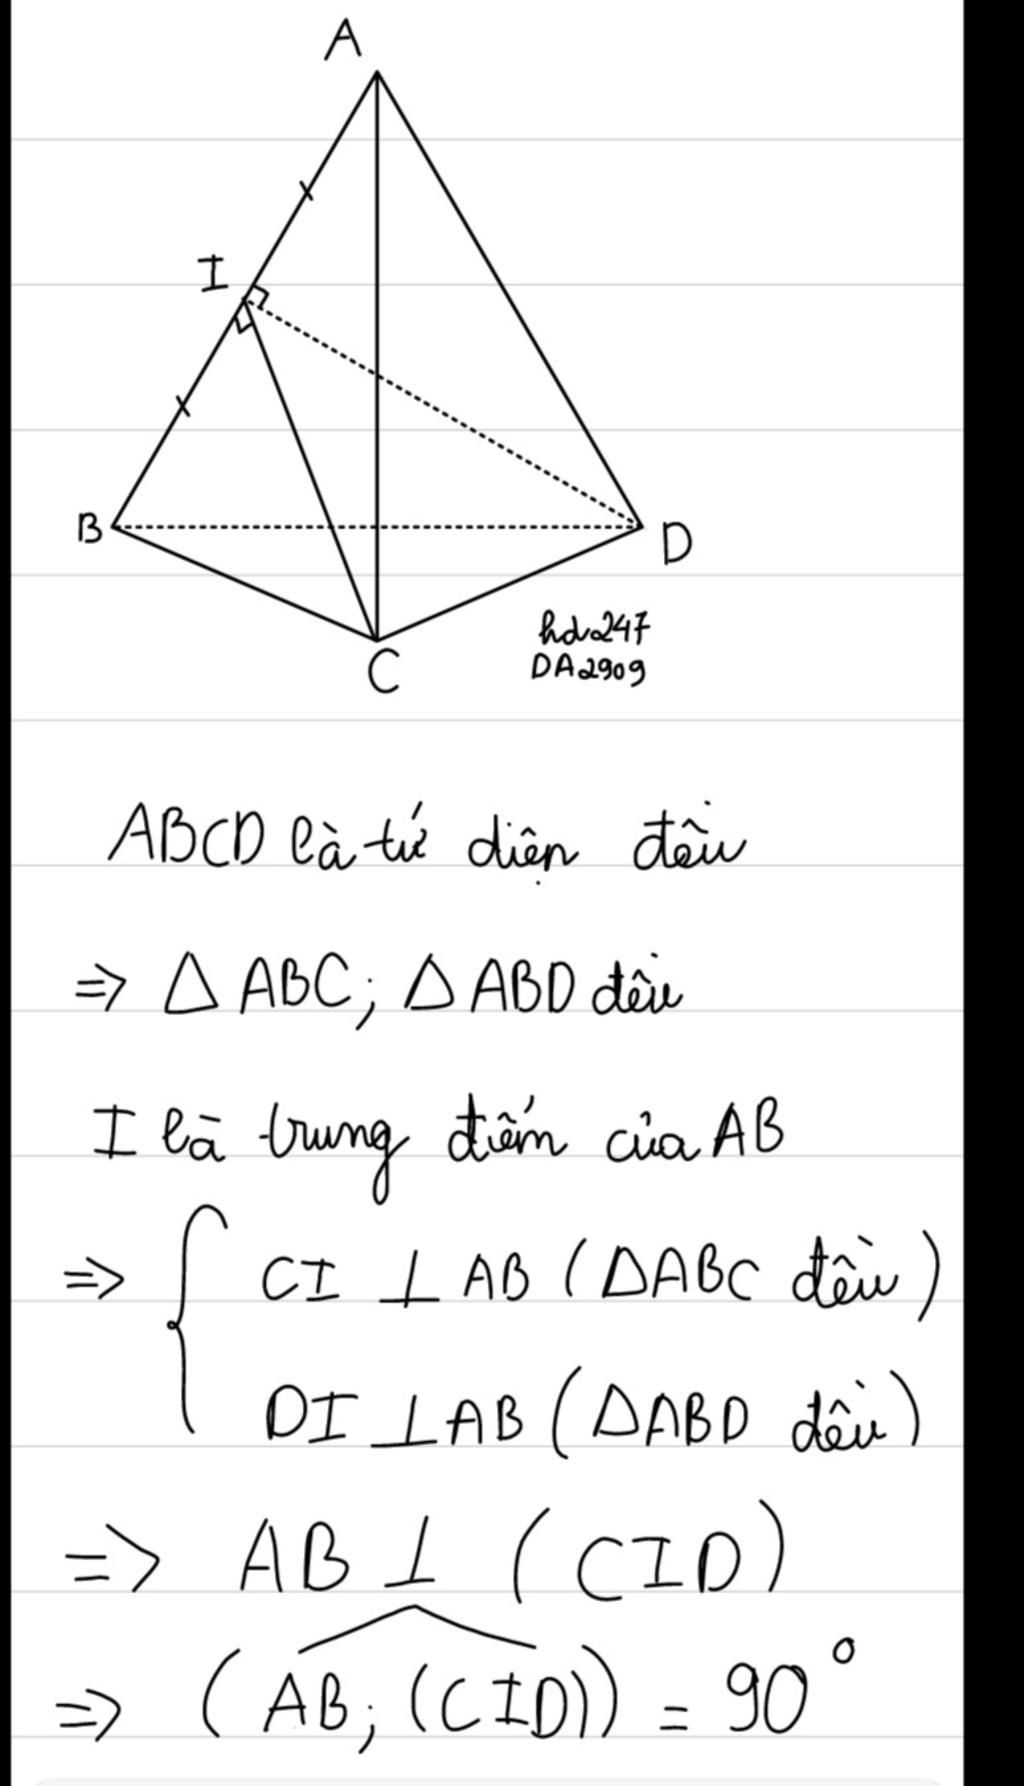 A
I
B
D
C
hdx247
DA2909
ABCD là tứ diện đều
=> △ ABC; △ ABD đều
I là trung điểm của AB
=> { CI ⊥ AB (△ABC đều)
DI ⊥ AB (△ABD đều)
=> AB ⊥ (CID)
=> (AB; (CID)) = 90°